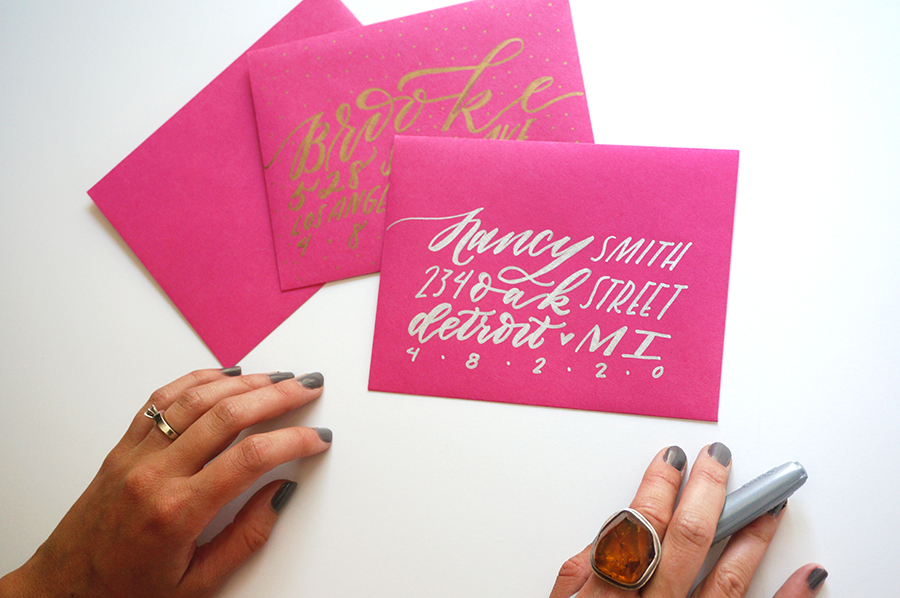 Brooke
528
LOS ANGELE
4 · 8
nancy SMITH
234 oak STREET
detroit ♥ MI
4 · 8 · 2 · 2 · 0